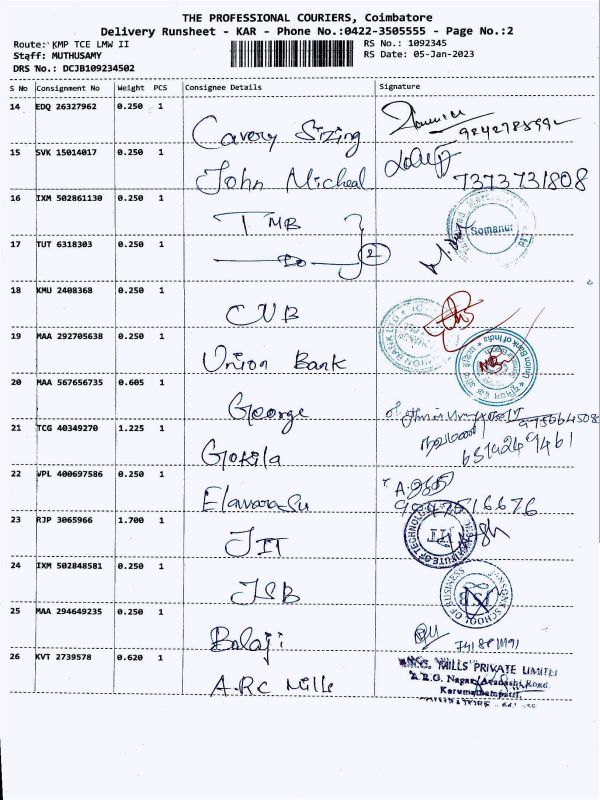 THE PROFESSIONAL COURIERS, Coimbatore
Delivery Runsheet - KAR - Phone No.:0422-3505555 - Page No.:2
Route: KMP TCE LMW II RS No.: 1092345
Staff: MUTHUSAMY RS Date: 05-Jan-2023
DRS No.: DCJB109234502
S No Consignment No Weight PCS Consignee Details Signature
14 EDQ 26327962 0.250 1
Cavery Sizing
15 SVK 15014017 0.250 1
John Micheal 7373731808
16 IXM 502861130 0.250 1
TMB Somanur
17 TUT 6318303 0.250 1
Do 2
18 KMU 2408368 0.250 1
CUB
19 MAA 292705638 0.250 1
Union Bank Union Bank of India
20 MAA 567656735 0.605 1
George
21 TCG 40349270 1.225 1
Gokila
22 VPL 400697586 0.250 1
Elavarasu
23 RJP 3065966 1.700 1
JIT JIT
24 IXM 502848581 0.250 1
JSB JSB SCHOOL OF BUSINESS
25 MAA 294649235 0.250 1
Balaji
26 KVT 2739578 0.620 1
A.R.C Mills
MILLS PRIVATE LIMITED
Karumathampatti